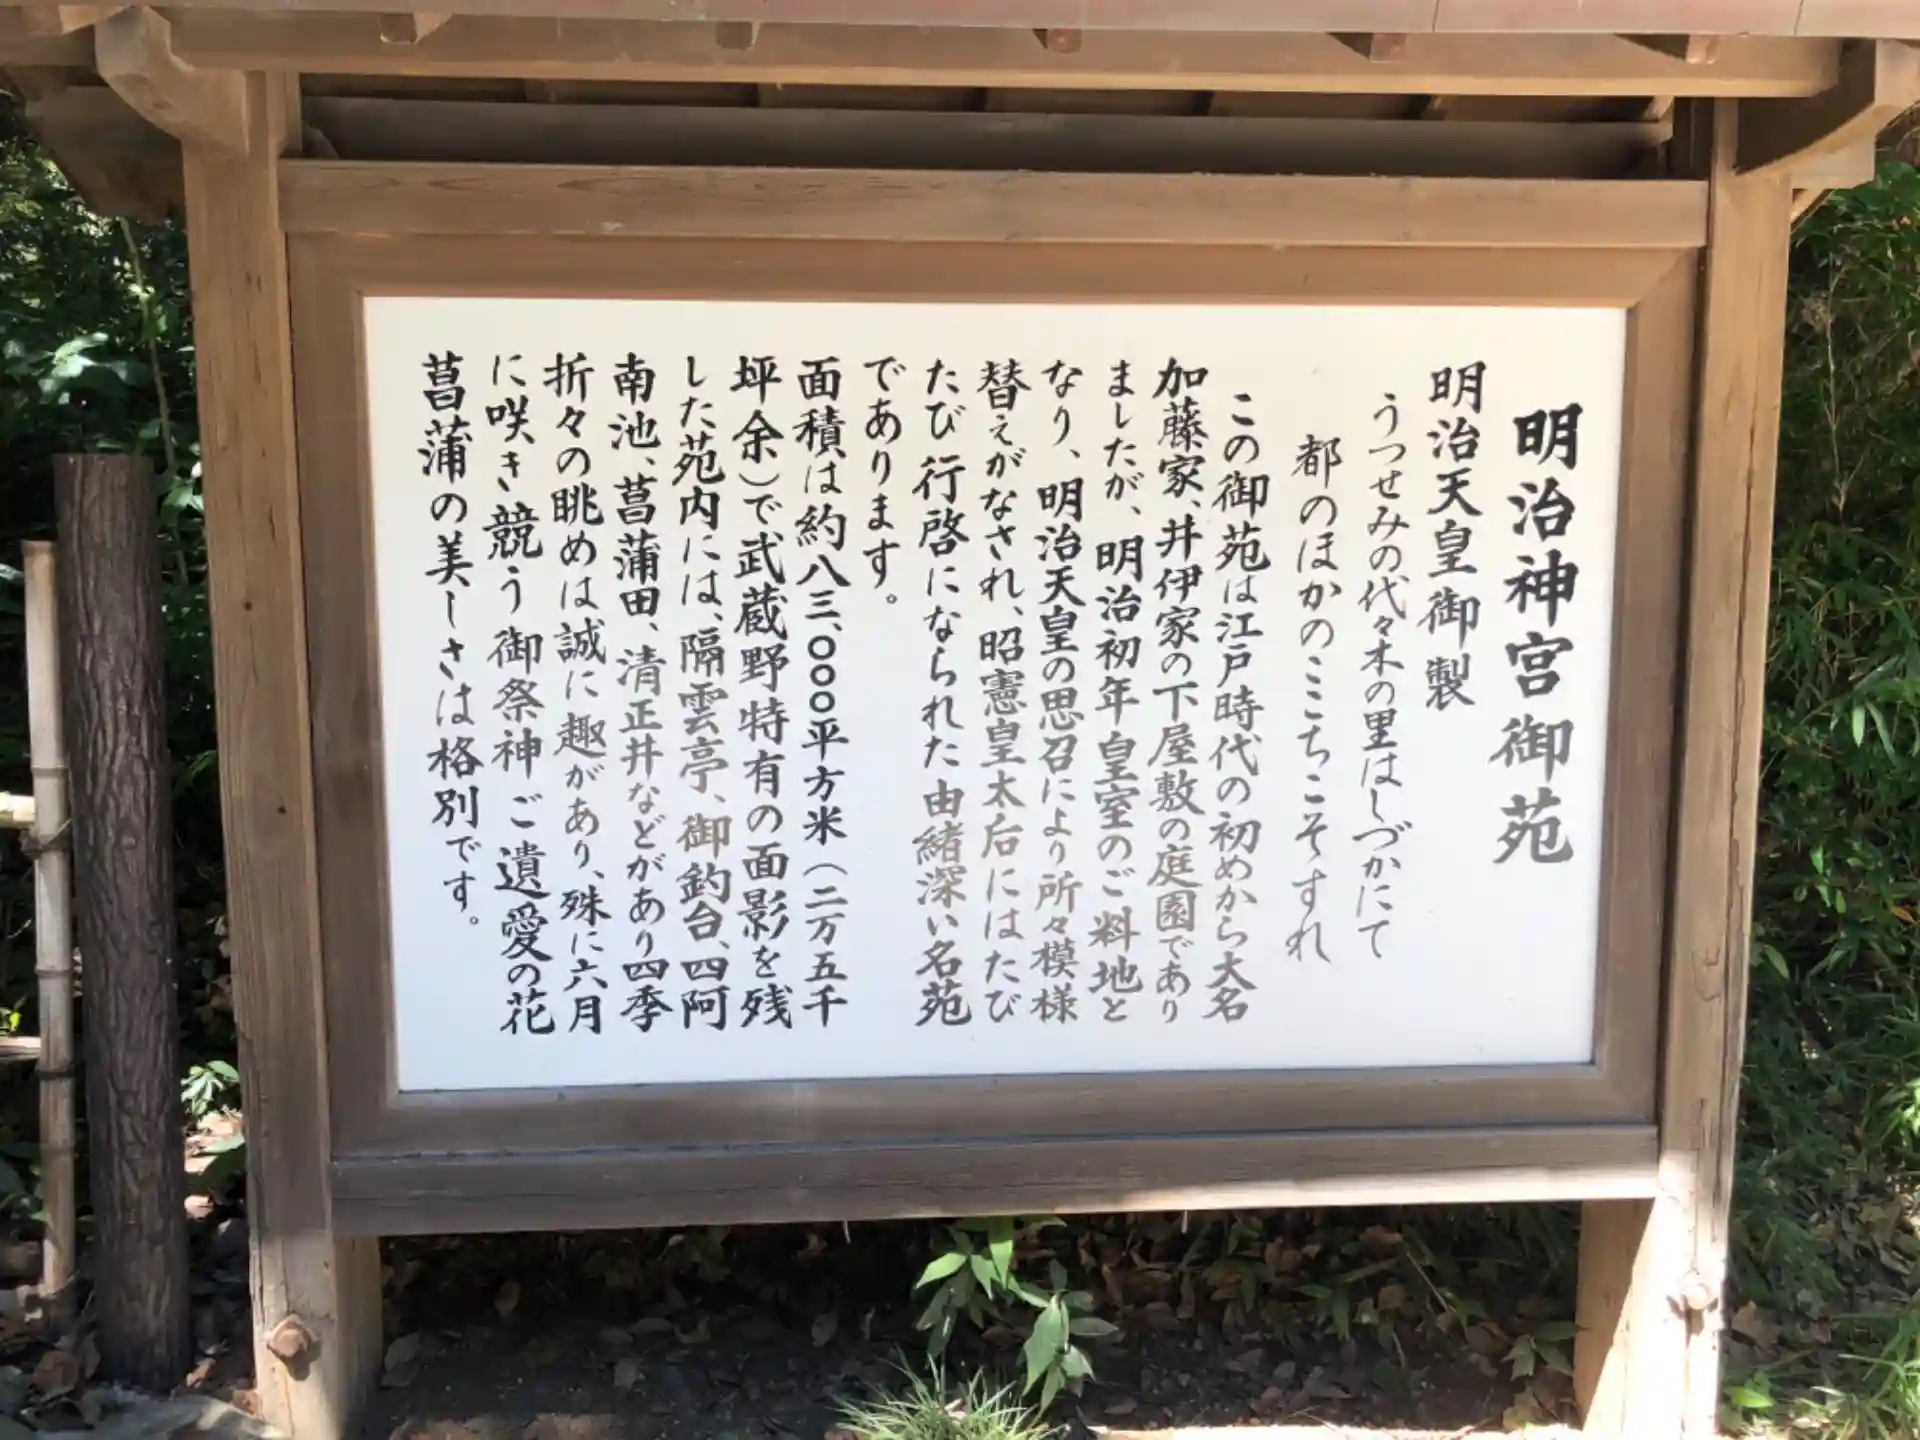 明治神宮御苑
明治天皇御製
うつせみの代々木の里はしづかにて
都のほかのこゝちこそすれ
この御苑は江戸時代の初めから大名
加藤家、井伊家の下屋敷の庭園であり
ましたが、明治初年皇室のご料地と
なり、明治天皇の思召により所々模様
替えがなされ、昭憲皇太后にはたび
たび行啓になられた由緒深い名苑
であります。
面積は約八三、〇〇〇平方米（二万五千
坪余）で武蔵野特有の面影を残
した苑内には、隔雲亭、御釣台、四阿
南池、菖蒲田、清正井などがあり四季
折々の眺めは誠に趣があり、殊に六月
に咲き競う御祭神ご遺愛の花
菖蒲の美しさは格別です。